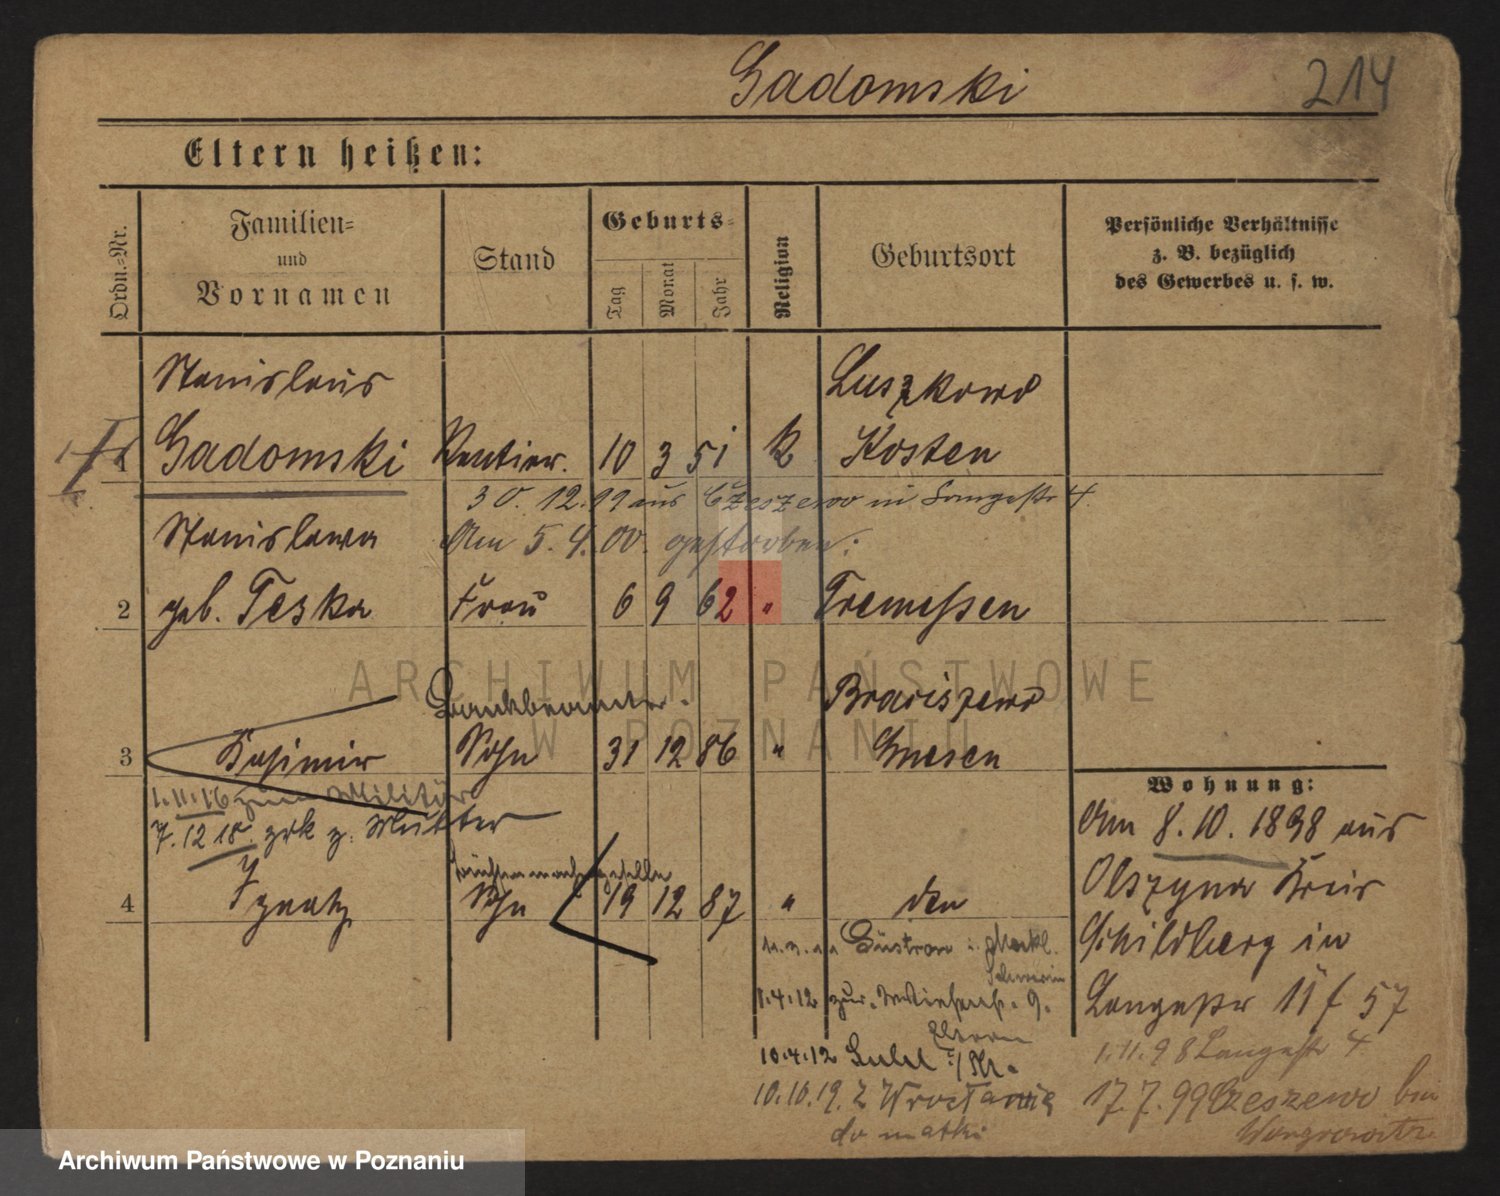 Gadomski 214
Eltern heißen:
Ordn.-Nr.
Familien- und Vornamen
Stand
Geburts-
Tag
Monat
Jahr
Religion
Geburtsort
Persönliche Verhältnisse
z. B. bezüglich
des Gewerbes u. s. w.
Stanislaus Luszkowo
1 Gadomski Rentier. 10 3 51 K Kosten
30.12.99 aus Czeszewo in Langestr 4.
Stanislawa Am 5.4.00. gestorben.
2 geb. Teska Frau 6 9 62 " Tremessen
Bankbeamter. Braciszewo
3 Kasimir Sohn 31 12 86 " Gnesen
1.11.16 zum Militär
7.12.18. zrk z. Mutter
4 Ignatz Sohn 19 12 87 " den
Güstrow i. Meckl.
Schwerin
1.4.12 zur. 9.
Eltern
10.4.12
10.10.19. z Wrocławia
do matki
Wohnung:
Am 8.10.1898 aus
Olszyna Kreis
Schildberg in
Langestr 11 f 57
1.11.98 Langestr 4
17.7.99 Czeszewo bei
Wongrowitz
ARCHIWUM PAŃSTWOWE
W POZNANIU
Archiwum Państwowe w Poznaniu